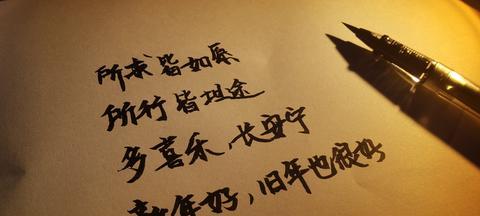 所求皆如愿
所行皆坦途
多喜乐,长安宁
新年好,旧年也很好